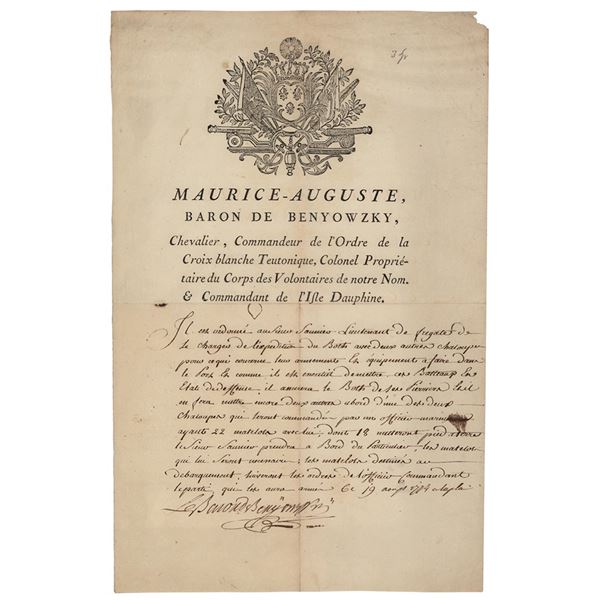 MAURICE-AUGUSTE,
BARON DE BENYOWZKY,
Chevalier, Commandeur de l'Ordre de la
Croix blanche Teutonique, Colonel Proprié-
taire du Corps des Volontaires de notre Nom.
& Commandant de l'Isle Dauphine.
Il est ordonné au Sieur Saunier Lieutenant de fregate de
se charger de l'expédition du Both avec deux autres chaloupes
pour ce qui concerne leur armement Et equipement a faire dans
le Port Et comme il est de mettre ces Batteaux En
Etat de deffense il le Both de ses Pierriers Et il
en fera mettre encore deux autres abord d'une des deux
Chaloupes qui seront commandées par un officier
ayant 22 matelots avec lui, dont 18 mettront pied a terre
le Sieur Saunier prendra a Bord du Particulier, les matelots
qui lui seront les matelots destinés au
debarquement, suiveront les ordres de l'officier Commandant
le parti qui les aura Ce 19 1774
Le Baron de Benyowszky